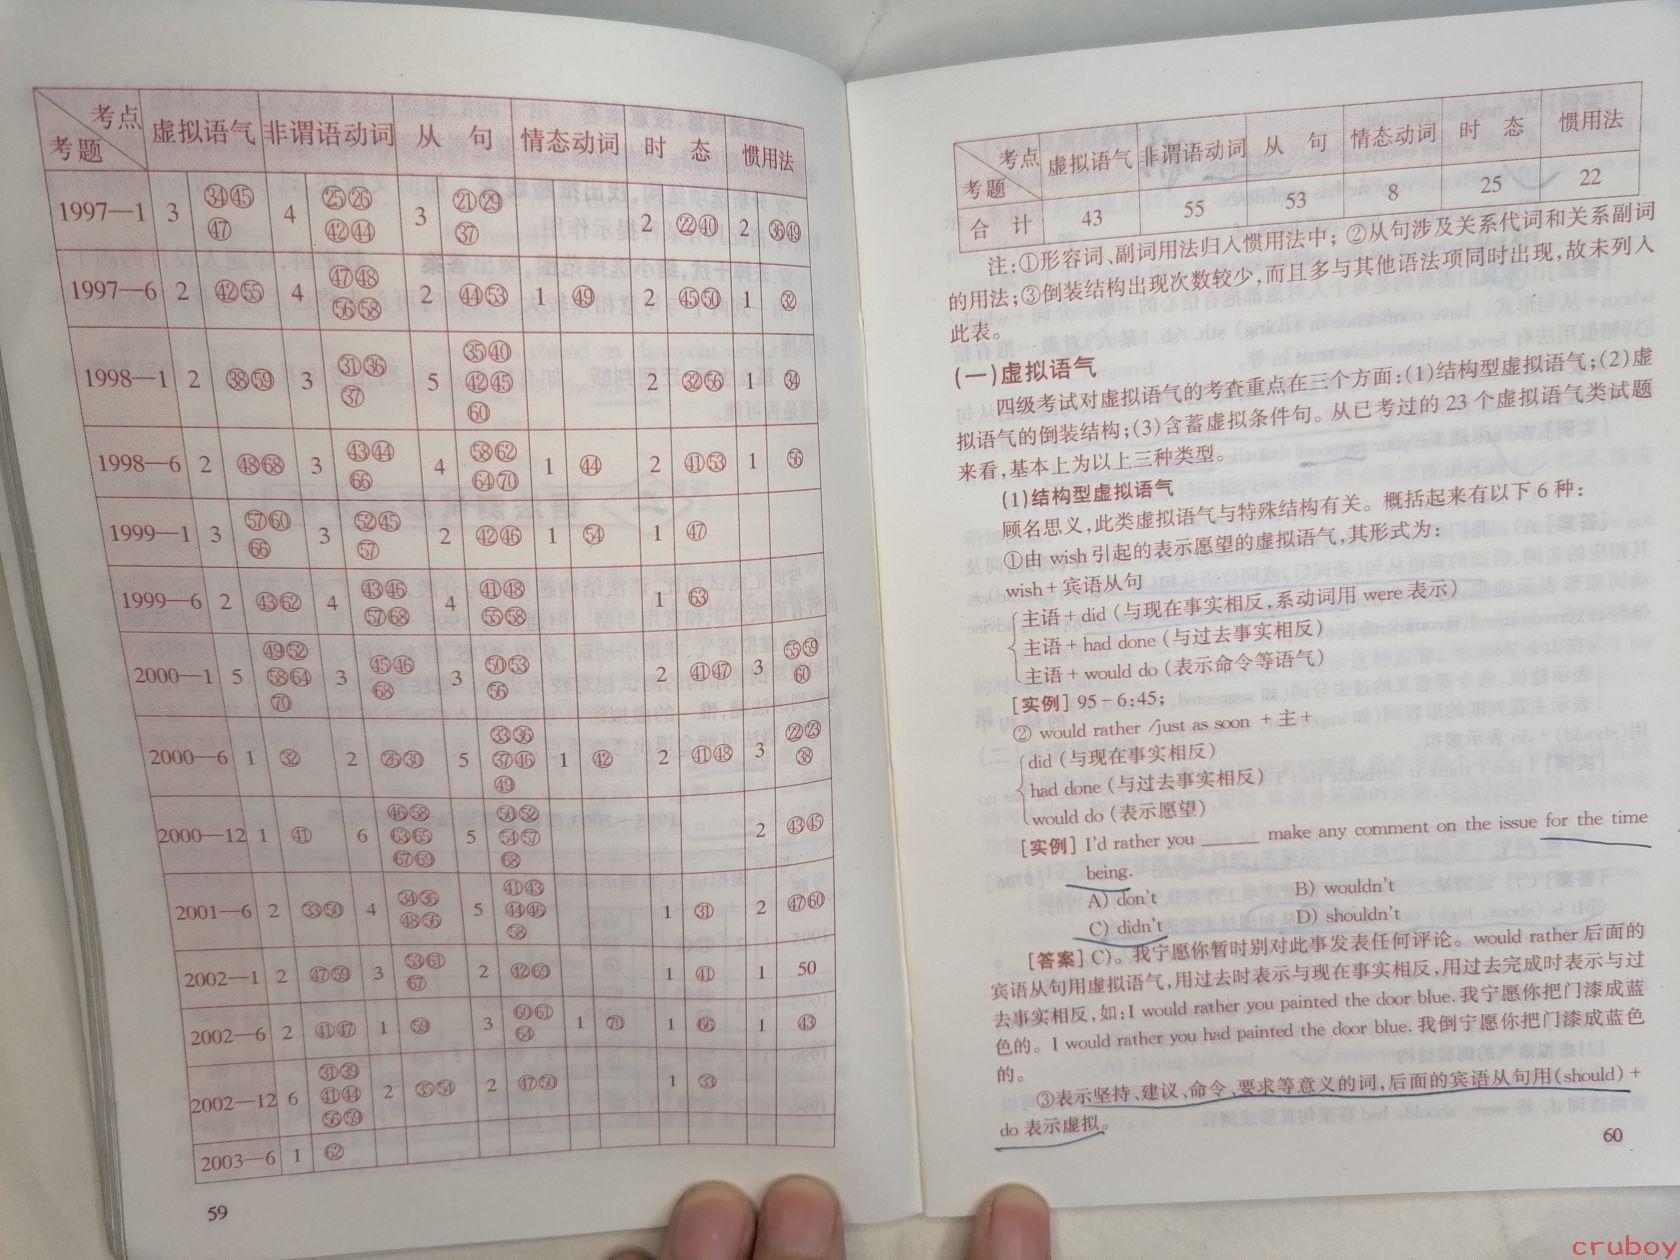 考点 虚拟语气 非谓语动词 从 句 情态动词 时 态 惯用法
考题
1997—1 3 ㉞㊺㊼ 4 ㉕㉖㊷㊹ 3 ㉑㉙㊲ 2 ㉒㊵ 2 ㊱㊾
1997—6 2 ㊷55 4 ㊼㊽56 58 2 ㊹53 1 ㊾ 2 ㊺㊿ 1 ㉜
1998—1 2 ㊳59 3 ㉛㊱㊲ 5 ㉟㊵㊷㊺60 2 ㉜56 1 ㉞
1998—6 2 ㊽68 3 ㊸㊹66 4 58 62 64 70 1 ㊹ 2 ㊶53 1 56
1999—1 3 57 60 66 3 52 ㊺57 2 ㊷㊻ 1 54 1 ㊼
1999—6 2 ㊸62 4 ㊸㊻57 68 4 ㊶㊽55 58 1 63
2000—1 5 ㊾52 58 64 70 3 ㊺㊻68 3 ㊿53 56 2 ㊶㊼ 3 55 59 60
2000—6 1 ㉜ 2 ㉖㉚ 5 ㉝㊱㊲㊻㊾ 1 ㊷ 2 ㊶㊽ 3 ㉒㉓㊳
2000—12 1 ㊶ 6 ㊻58 63 65 67 69 5 ㊿52 54 57 68 2 ㊸㊺
2001—6 2 ㉝㊿ 4 ㉞㊱㊽56 5 ㊶㊸㊹㊻58 1 ㉛ 2 ㊼60
2002—1 2 ㊼59 3 53 61 67 2 ㊷69 1 ㊶ 1 50
2002—6 2 ㊶㊼ 1 59 3 60 61 64 1 70 1 66 1 ㊸
2002—12 6 ㉛㊴㊶㊹56 59 2 ㉟54 2 ㊼㊿ 1 ㉝
2003—6 1 62
59
考点 虚拟语气 非谓语动词 从 句 情态动词 时 态 惯用法
考题
合 计 43 55 53 8 25 22
注:①形容词、副词用法归入惯用法中;②从句涉及关系代词和关系副词
的用法;③倒装结构出现次数较少,而且多与其他语法项同时出现,故未列入
此表。
(一)虚拟语气
四级考试对虚拟语气的考查重点在三个方面:(1)结构型虚拟语气;(2)虚
拟语气的倒装结构;(3)含蓄虚拟条件句。从已考过的 23 个虚拟语气类试题
来看,基本上为以上三种类型。
(1)结构型虚拟语气
顾名思义,此类虚拟语气与特殊结构有关。概括起来有以下 6 种:
①由 wish 引起的表示愿望的虚拟语气,其形式为:
wish+宾语从句
主语+did (与现在事实相反,系动词用 were 表示)
主语+had done (与过去事实相反)
主语+would do (表示命令等语气)
[实例] 95-6:45;
② would rather /just as soon +主+
did (与现在事实相反)
had done (与过去事实相反)
would do (表示愿望)
[实例] I'd rather you ______ make any comment on the issue for the time
being.
A) don't B) wouldn't
C) didn't D) shouldn't
[答案] C)。我宁愿你暂时别对此事发表任何评论。would rather 后面的
宾语从句用虚拟语气,用过去时表示与现在事实相反,用过去完成时表示与过
去事实相反,如:I would rather you painted the door blue.我宁愿你把门漆成蓝
色的。I would rather you had painted the door blue.我倒宁愿你把门漆成蓝色
的。
③表示坚持、建议、命令、要求等意义的词,后面的宾语从句用(should)+
do 表示虚拟。
60
cruboy